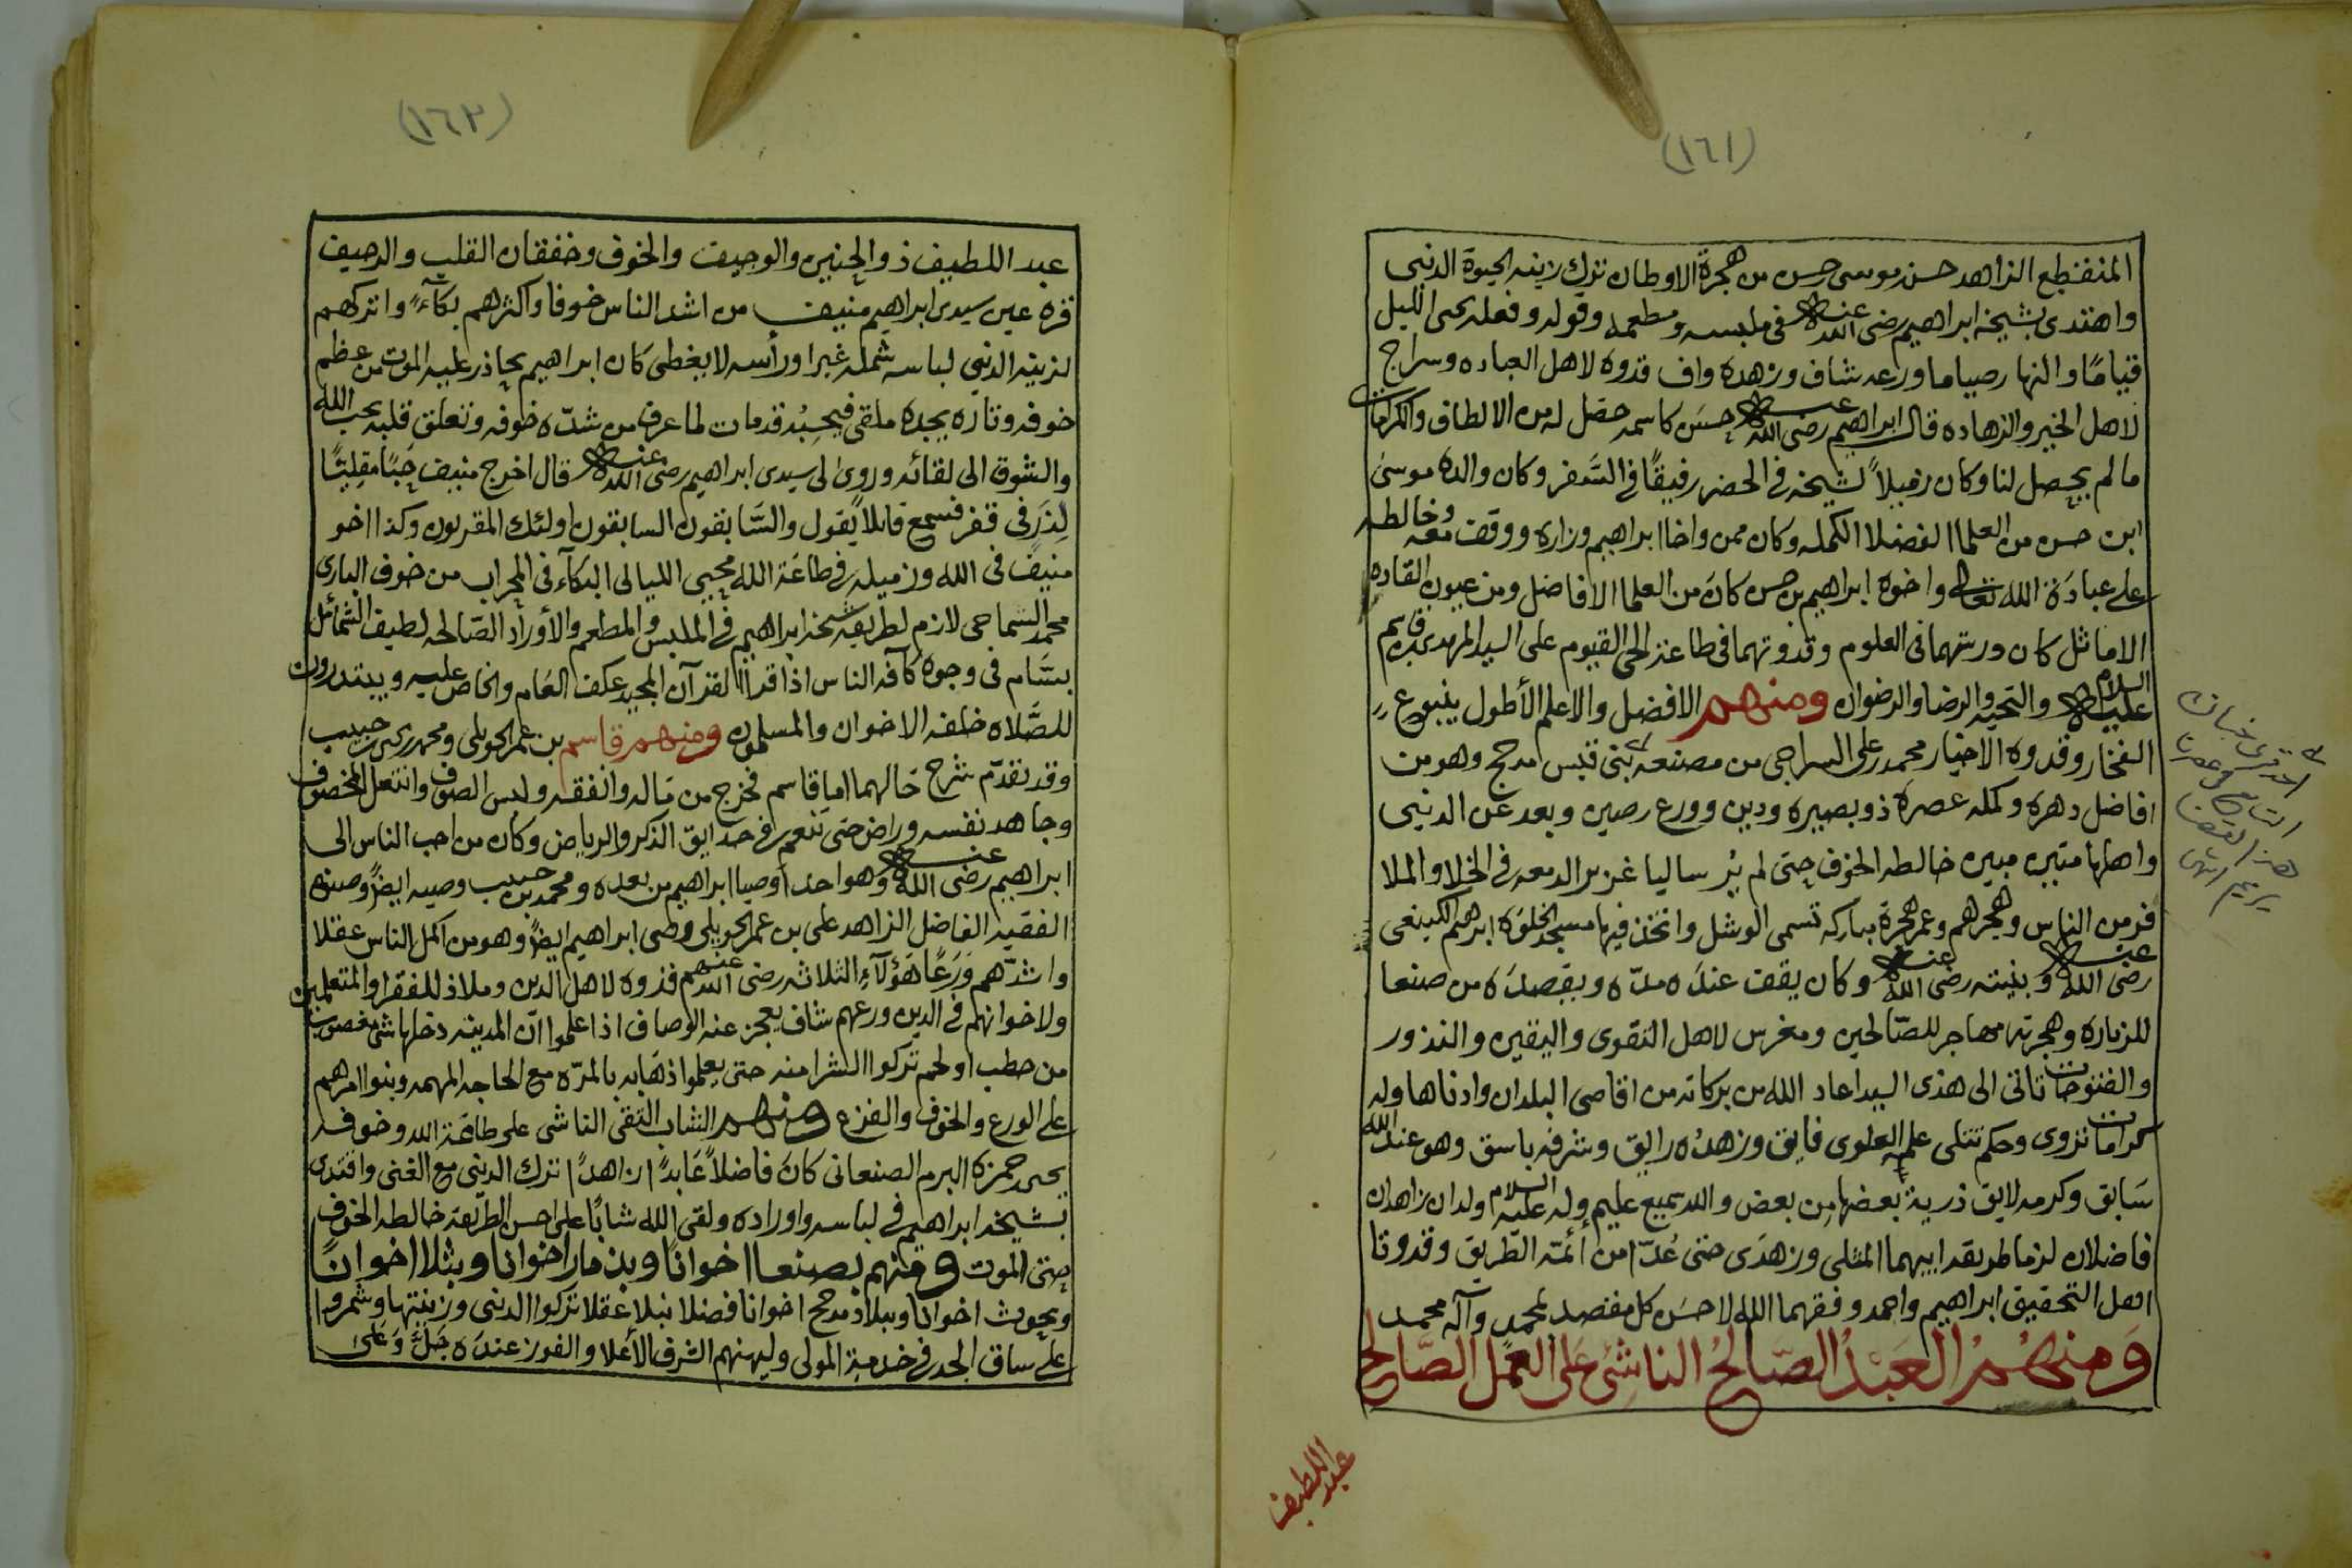 (١٦١)
المنقطع الزاهد حسن موسى حسن من هجرة الاوطان ترك زينه الحيوة الدنيى
واهتدى بشيخه ابراهيم رضى الله عنه فى ملبسه ومطعمه وقوله وفعله يحى الليل
قيامًا والنهار صياما ورعه شاف وزهده واف قدوه لاهل العباده وسراج
لاهل الخير والزهاده قال ابراهيم رضى الله عنه حسن كاسمه حصل له من الالطاف والكرامات
ما لم يحصل لنا وكان زميلاً لشيخه فى الحضر رفيقًا فى السَّفر وكان والده موسىٰ
ابن حسن من العلما الفضلا الكمله وكان ممن واخا ابراهيم وزاره ووقف معه وخالطه
على عبادَة الله تعالى واخوه ابراهيم بن حسن كانَ من العلما الافاضل ومن عيون القاده
الاماثل كان درستهما فى العلوم وقدوتهما فى طاعة الحى القيوم على السيد المهدى بن قاسم
عليه السلام والتحيه والرضا والرضوان ومنهم الافضل والاعلم الأطول ينبوع
الفخار وقدوه الاخيار محمد بن على السراجى من مصنعه بنى قيس مدحج وهو من
افاضل دهره وكمله عصره ذو بصيره ودين وورع رصين وبعد عن الدنيى
واهلها مبين خالطه الخوف حتى لم يُر ساليا غزير الدمعه فى الخلا والملا
فر من الناس وهجرهم وعمر هجرة مباركه تسمى الوشل واتخذ فيها مسجد لخلوَة ابراهيم الكينعى
رضى الله عنه وبنيته رضى الله عنه وكان يقف عندَه مدّه ويقصدَه من صنعا
للزياره وهجرته مهاجر للصّالحين ومغرس لاهل التقوى واليقين والنذور
والفتوحات تاتى الى هذى السيد اعاد الله من بركاته من اقاصى البلدان وادناها وله
كرامات تروى وحكم تتلى علمه العلوى فايق وزهدُه رايق وشرفه باسق وهو عند الله
سَابق وكرمه لايق ذرية بعضها من بعض والله سميع عليم وله عليه السلام ولدان زاهدان
فاضلان لزما طريقه ابيهما المثلى وزهدَى حتى عُدّا من أئمّة الطّريق وقدوتا
اهل التحقيق ابراهيم واحمد وفقهما الله لاحسَن كل مقصد بمحمد وآله محمد
وَمنهُمُ العَبْدُ الصّالحُ الناشئ عَلى العمَل الصَّالح
عبد اللطيف
(١٦٢)
عبد اللطيف ذو الحنين والوجيف والخوف وخفقان القلب والرجيف
قره عين سيدى ابراهيم منيف من اشد الناس خوفا واكثرهم بكآءً واتركهم
لزينه الدنيى لباسه شمله غبرا ورأسه لا يغطى كان ابراهيم يحاذر عليه الموت من عظم
خوفه وتاره يجده ملقى فيحسِبُه قد مات لما عرف من شدّه خوفه وتعلق قلبه بحب الله
والشوق الى لقائه وروى لى سيدى ابراهيم رضى الله عنه قال اخرج منيف حَبًا مقليًا
لِذَر فى قفر فسمع قايلاً يقول والسَّابقون السابقون اولئك المقربون وكذا اخو
منيف فى الله وزميله فى طاعَة الله محيى الليالى البكآء فى المحراب من خوف البارى
محمد الشماحى لازم لطريقه شيخه ابراهيم فى الملبس والمطعم والأوراد الصّالحه لطيف الشمائل
بسَّام فى وجوه كآفه الناس اذا قرأ القرآن المجيد عكف العَام والخاص عليه ويبتدرون
للصَّلاه خلفه الاخوان والمسلمون ومنهم قاسم بن عمر الحويلى ومحمد بن حبيب
وقد تقدّم شرح حَالهما اما قاسم فخرج من مَاله وانفقه ولبس الصوف وانتعل المخصوف
وجاهد نفسه وراض حتى تنعم فى حدايق الذكر والرياض وكان من احب الناس الى
ابراهيم رضى الله عنه وهو احد أوصيا ابراهيم من بعده ومحمد بن حبيب وصيه ايضًا وصنوه
الفقيه الفاضل الزاهد على بن عمر الحويلى وصى ابراهيم ايضًا وهو من اكمل الناس عقلا
واشدّهم وَرَعًا هَؤلآءِ الثلاثه رضى الله عنهم قدوه لاهل الدين وملاذ للفقرا والمتعلمين
ولاخوانهم فى الدين ورعهم شاف يعجز عنه الوصاف اذا علموا انّ المدينه دخلها شئ مغصوب
من حطب او لحم تركوا الشرا منه حتى يعلموا ذهابه بالمرّه مع الحاجه المهمه وبنوا امرهم
على الورع والخوف والفزع ومنهم الشاب التقى الناشى على طاعَة الله وخوفه
يحى حمزة البرم الصنعانى كانَ فاضلاً عَابدًا زاهدًا ترك الدنيى مع الغنى واقتدى
بشيخه ابراهيم فى لباسه واوراده ولقى الله شابًا على احسن الطريقه خالطه الخوف
حتى الموت ومنهم بصنعا اخوانًا وبذمار اخوانا وبثلا اخوانًا
وبحوث اخوانا وببلاد مدحج اخوانا فضلا نبلا عقلا تركوا الدنيى وزينتها وشمروا
على ساق الجد فى خدمة المولى وليهنهم الشرف الأعلا والفوز عندَه جَلَّ وَعَلىٰ